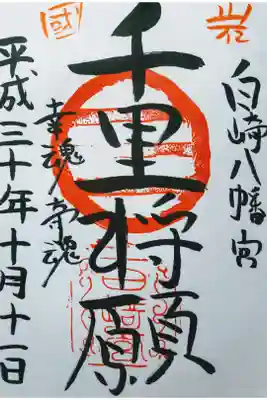 岩國
白崎八幡宮
千里将願原
幸魂 奇魂
平成三十年十月十一日